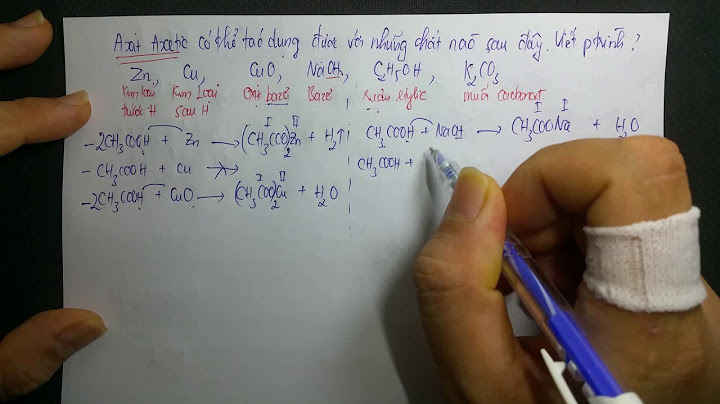 Axit Axetic có thể tác dụng được với những chất nào sau đây. Viết ptrình ?
Zn, Cu, CuO, NaOH, C2H5OH, K2CO3
Kim loại trước H Kim Loại sau H Oxit bazơ Bazơ Rượu etylic muối cacbonat
-2CH3COOH + Zn → (CH3COO)2Zn + H2↑
I II
- CH3COOH + Cu ↛
-2CH3COOH + CuO → (CH3COO)2Cu + H2O
I II
CH3COOH + NaOH → CH3COONa + H2O
I I
CH3COOH +